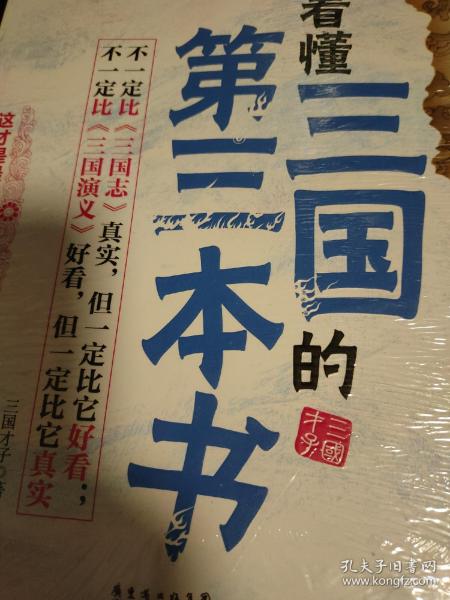 看懂三国的
第三本书
三國才子
不一定比《三国志》真实，但一定比它好看；
不一定比《三国演义》好看，但一定比它真实
这才是
三国才子◎著
孔夫子旧书网
www.kongfz.com